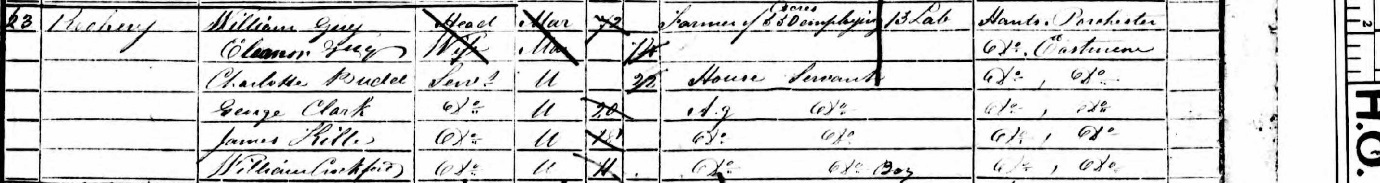 23 William Guy Head Mar 72 Farmer of acres employing 13 Lab Hants. Porchester
Eleanor Guy Wife Mar Do. Eastmeon
Charlotte Budd Servt U 22 House Servant Do, Do
George Clark Do U 20 Ag Do Do, Do
James Do U 18 Do Do Do, Do
William Crockford Do U 11 Do Do Boy Do, Do
2
H.O.